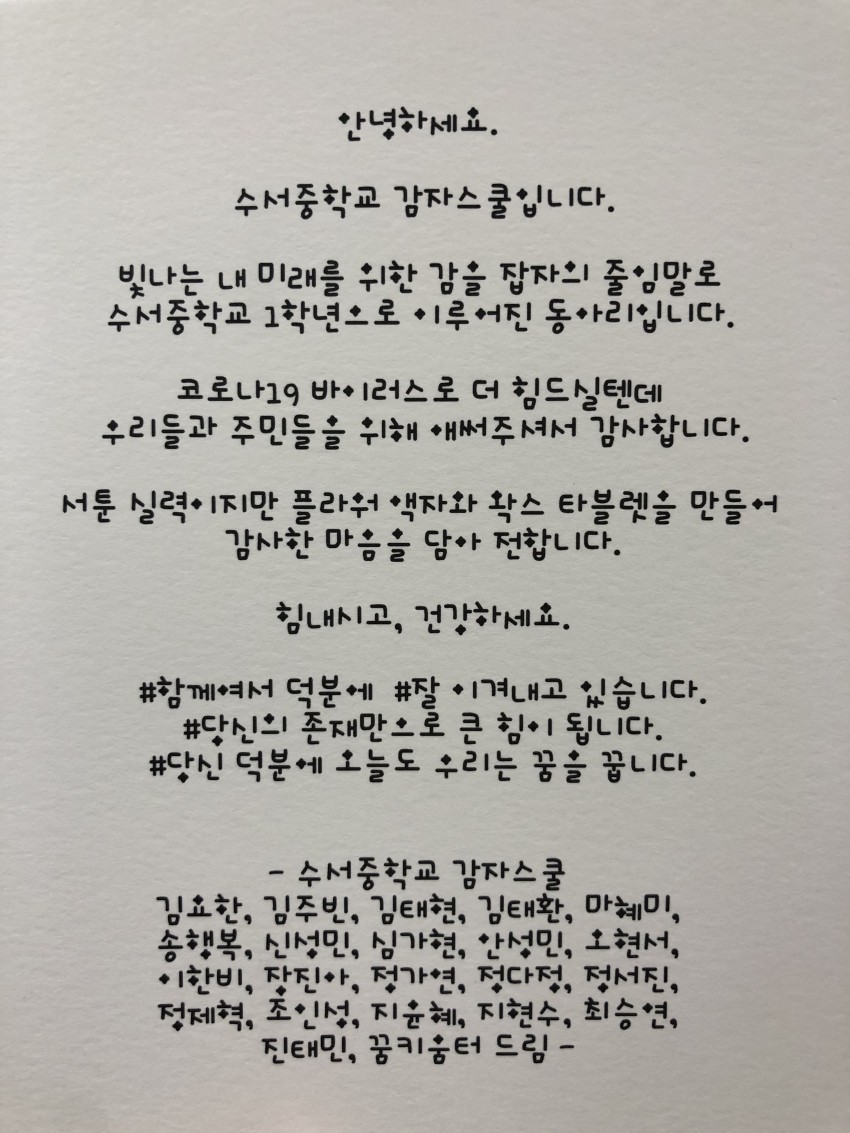 안녕하세요.
수서중학교 감자스쿨입니다.
빛나는 내 미래를 위한 감을 잡자의 줄임말로
수서중학교 1학년으로 이루어진 동아리입니다.
코로나19 바이러스로 더 힘드실텐데
우리들과 주민들을 위해 애써주셔서 감사합니다.
서툰 실력이지만 플라워 액자와 왁스 타블렛을 만들어
감사한 마음을 담아 전합니다.
힘내시고, 건강하세요.
#함께여서 덕분에 #잘 이겨내고 있습니다.
#당신의 존재만으로 큰 힘이 됩니다.
#당신 덕분에 오늘도 우리는 꿈을 꿉니다.
- 수서중학교 감자스쿨
김요한, 김주빈, 김태현, 김태환, 마혜미,
송행복, 신성민, 심가현, 안성민, 오현서,
이한비, 장진아, 정가연, 정다정, 정서진,
정제혁, 조인성, 지윤혜, 지현수, 최승연,
진태민, 꿈키움터 드림 -